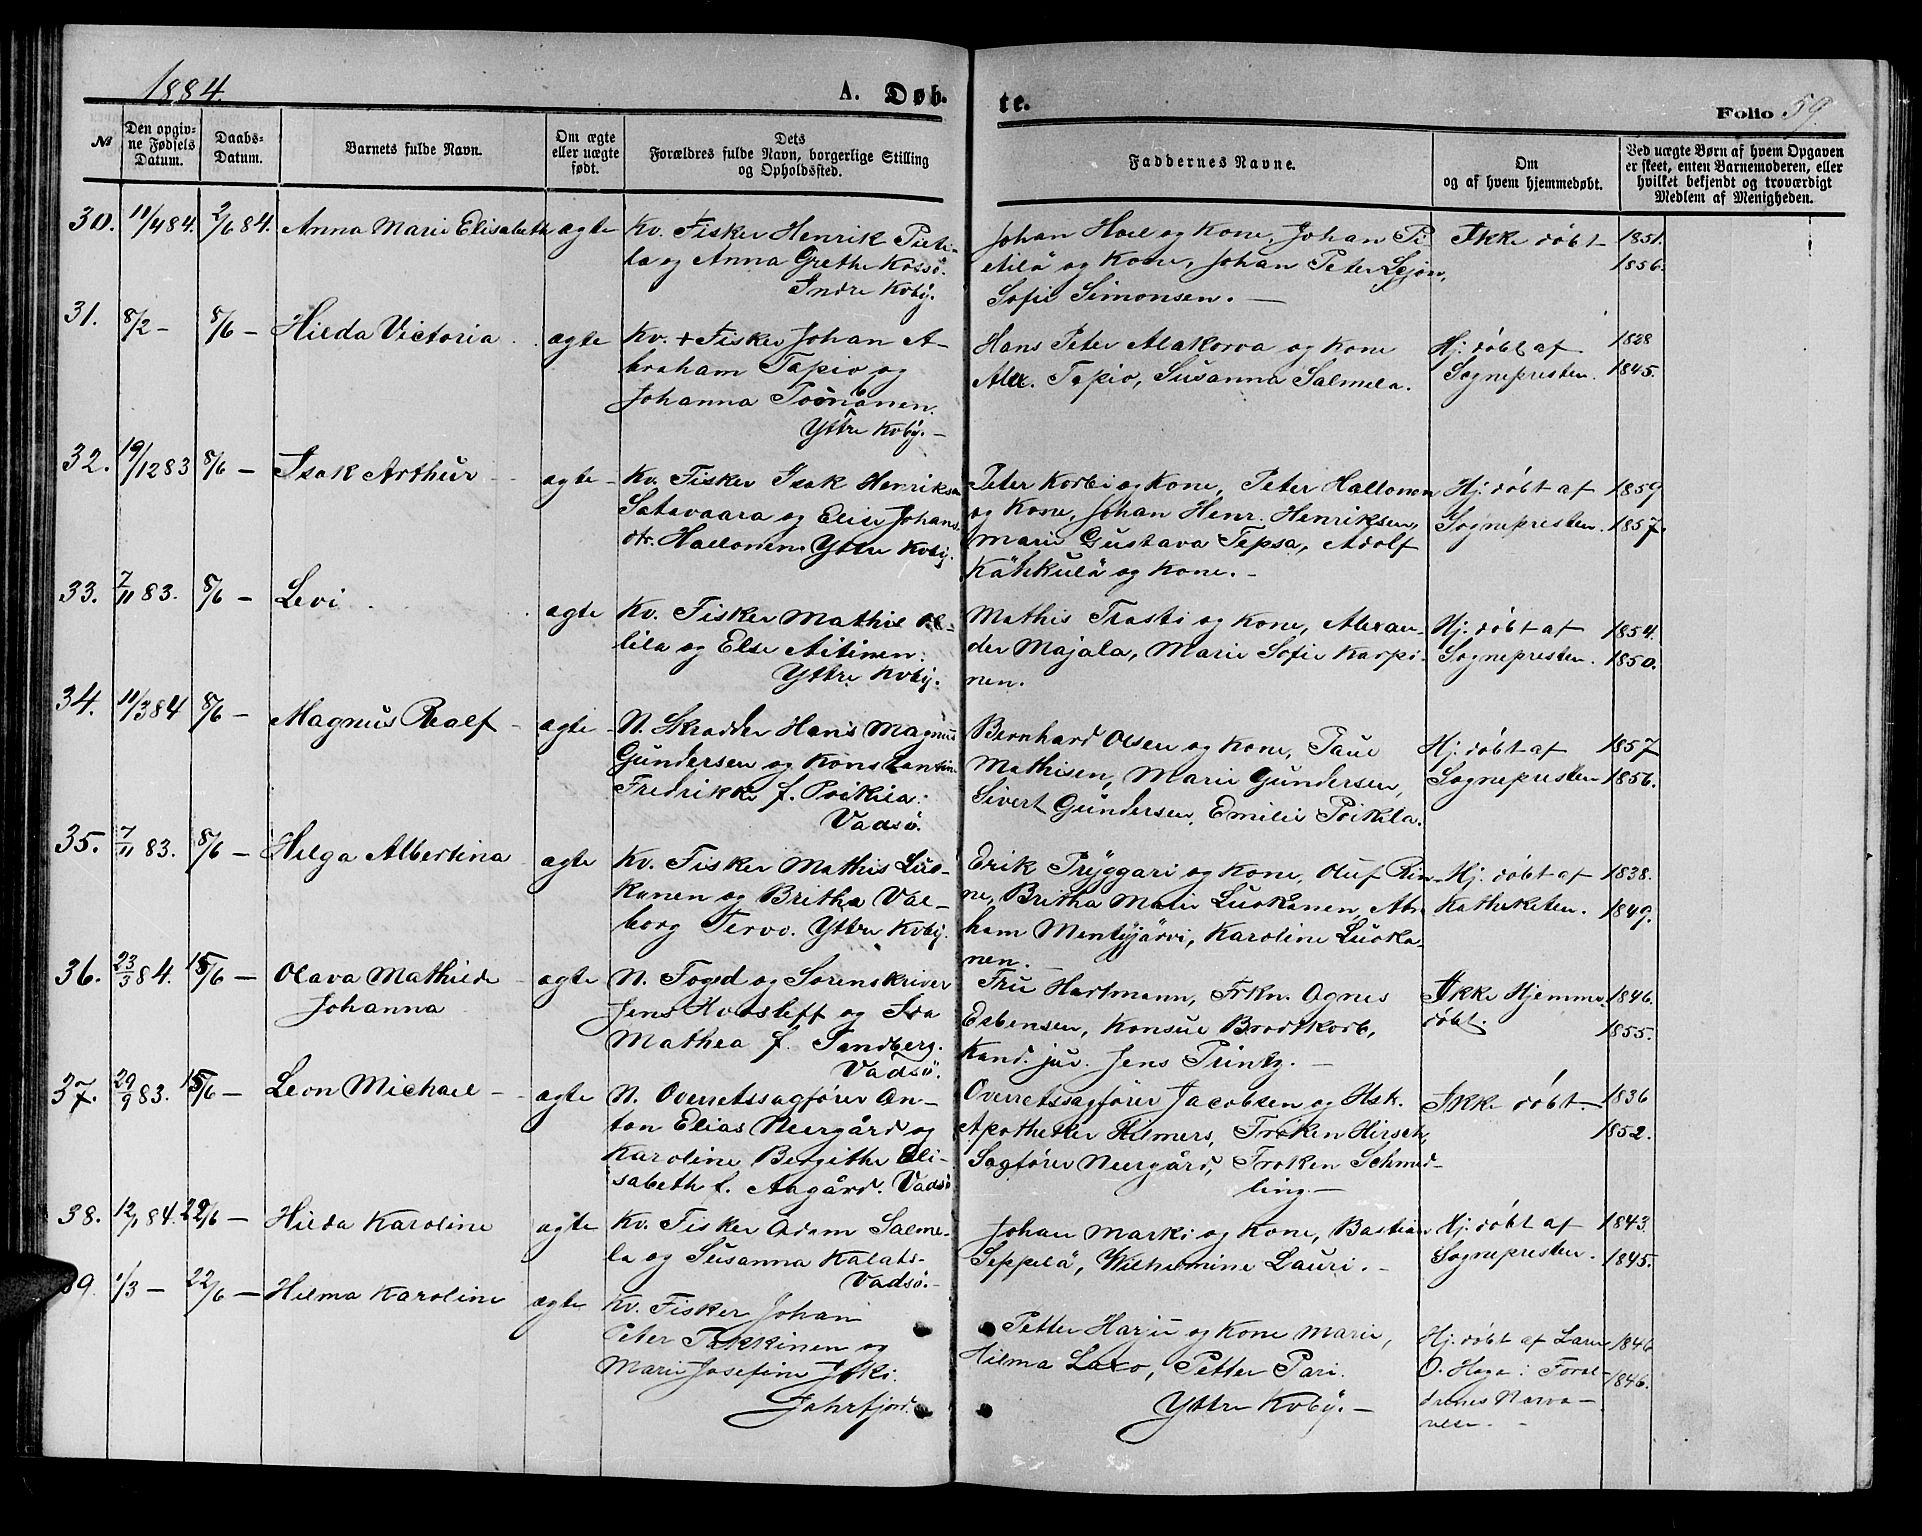 1884.
A. Døb-
te.
Folio 59.
№
Den opgiv-
ne Fødsels
Datum.
Daabs-
Datum.
Barnets fulde Navn.
Om ægte
eller uægte
født.
Dets
Forældres fulde Navn, borgerlige Stilling
og Opholdssted.
Faddernes Navne.
Om
og af hvem hjemmedøbt.
Ved uægte Børn af hvem Opgaven
er skeet, enten Barnemoderen, eller
hvilket bekjendt og troværdigt
Medlem af Menigheden.
30. 11/4 84. 2/6 84. Anna Marie Elisabeth ægte
Kv. Fisker Henrik Pieti-
la og Anna Grethe Kossö.
Indre Kvby.
Johan Hoel og Kone, Johan Pi
etilä og Kone, Johan Peter Lejon,
Sofie Simonsen. —
Ikke døbt
1851.
1856.
31. 8/2 — 8/6 — Hilda Victoria ægte
Kv. + Fisker Johan A-
braham Tapio og
Johanna Toonänen.
Yttre Kvby. —
Hans Peter Alakorva og Kone
Alex. Tapio, Susanna Salmela.
Hj. døbt af
Sognepresten.
1828
1845.
32. 19/12 83 8/6 — Isak Arthur ægte
Kv. Fisker Isak Henriksen
Satavaara og Elise Johans
dtr. Hallonen. Yttre Kvby.
Peter Korbi og Kone, Peter Hallonen
og Kone, Johan Henr. Henriksen,
Marie Gustava Tepsa, Adolf
Kähkulä og Kone. —
Hj. døbt af
Sognepresten.
1859
1857.
33. 7/11 83. 8/6 — Levi ægte
Kv. Fisker Mathis Ol-
lila og Else Aitinen.
Yttre Kvby.
Mathis Trasti og Kone, Alexan-
der Majala, Marie Sofie Karpi-
nen.
Hj. døbt af
Sognepresten.
1854.
1850.
34. 11/3 84 8/6 — Magnus Rolf ægte
N. Skrædder Hans Magnus
Gundersen og Konstantin
Fredrikke f. Poikila.
Vadsö.
Bernhard Olsen og Kone, Paul
Mathisen, Marie Gundersen,
Sivert Gundersen, Emilie Poikila.
Hj. døbt af
Sognepresten
1857
1856.
35. 7/11 83. 8/6 — Helga Albertina ægte
Kv. Fisker Mathis Luo-
kanen og Britha Val-
borg Tervo. Yttre Kvby.
Erik Pryggari og Kone, Oluf Rin-
ne, Britha Marie Luokanen, Abra
ham Mentyjärvi, Karoline Luoka-
nen. —
Hj. døbt af
Katheketen.
1838.
1849.
36. 23/3 84. 15/6 — Olava Mathilde
Johanna
ægte
N. Foged og Sorenskriver
Jens Holsleff og Ida
Mathea f. Sandberg.
Vadsö.
Fru Hartmann, Frkn. Agnes
Esbensen, Konsul Brodtkorb,
Kand. jur. Jens Printz. —
Ikke Hjemme-
døbt.
1846.
1855.
37. 29/9 83. 15/6 — Leon Michael — ægte
N. Overretssagfører An-
ton Elias Neergård og
Karoline Bergithe Eli-
sabeth f. Aagård. Vadsö
Overretssagfører Jacobsen og Hsk.
Apotheker Hilmers, Frøken Hirsch,
Sagfører Neergård, Frøken Schmed-
ling. —
Ikke døbt. —
1836
1852.
38. 12/1 84. 22/6 — Hilda Karoline ægte
Kv. Fisker Adam Salme-
la og Susanna Kalats.
Vadsö. —
Johan Marki og Kone, Bastian
Seppelä, Wilhelmine Lauri. —
Hj. døbt af
Sognepresten.
1843.
1845.
39. 1/3 — 22/6 — Hilma Karoline ægte
Kv. Fisker Johan
Peter Takkinen og
Marie Josefine Joki.
Jahrfjord.
Petter Harju og Kone Marie,
Hilma Laxo, Petter Pari.
Yttre Kvby. —
Hj. døbt af Lars
O. Haga i Foræl-
drenes Nærva-
relse. —
1846
1846.